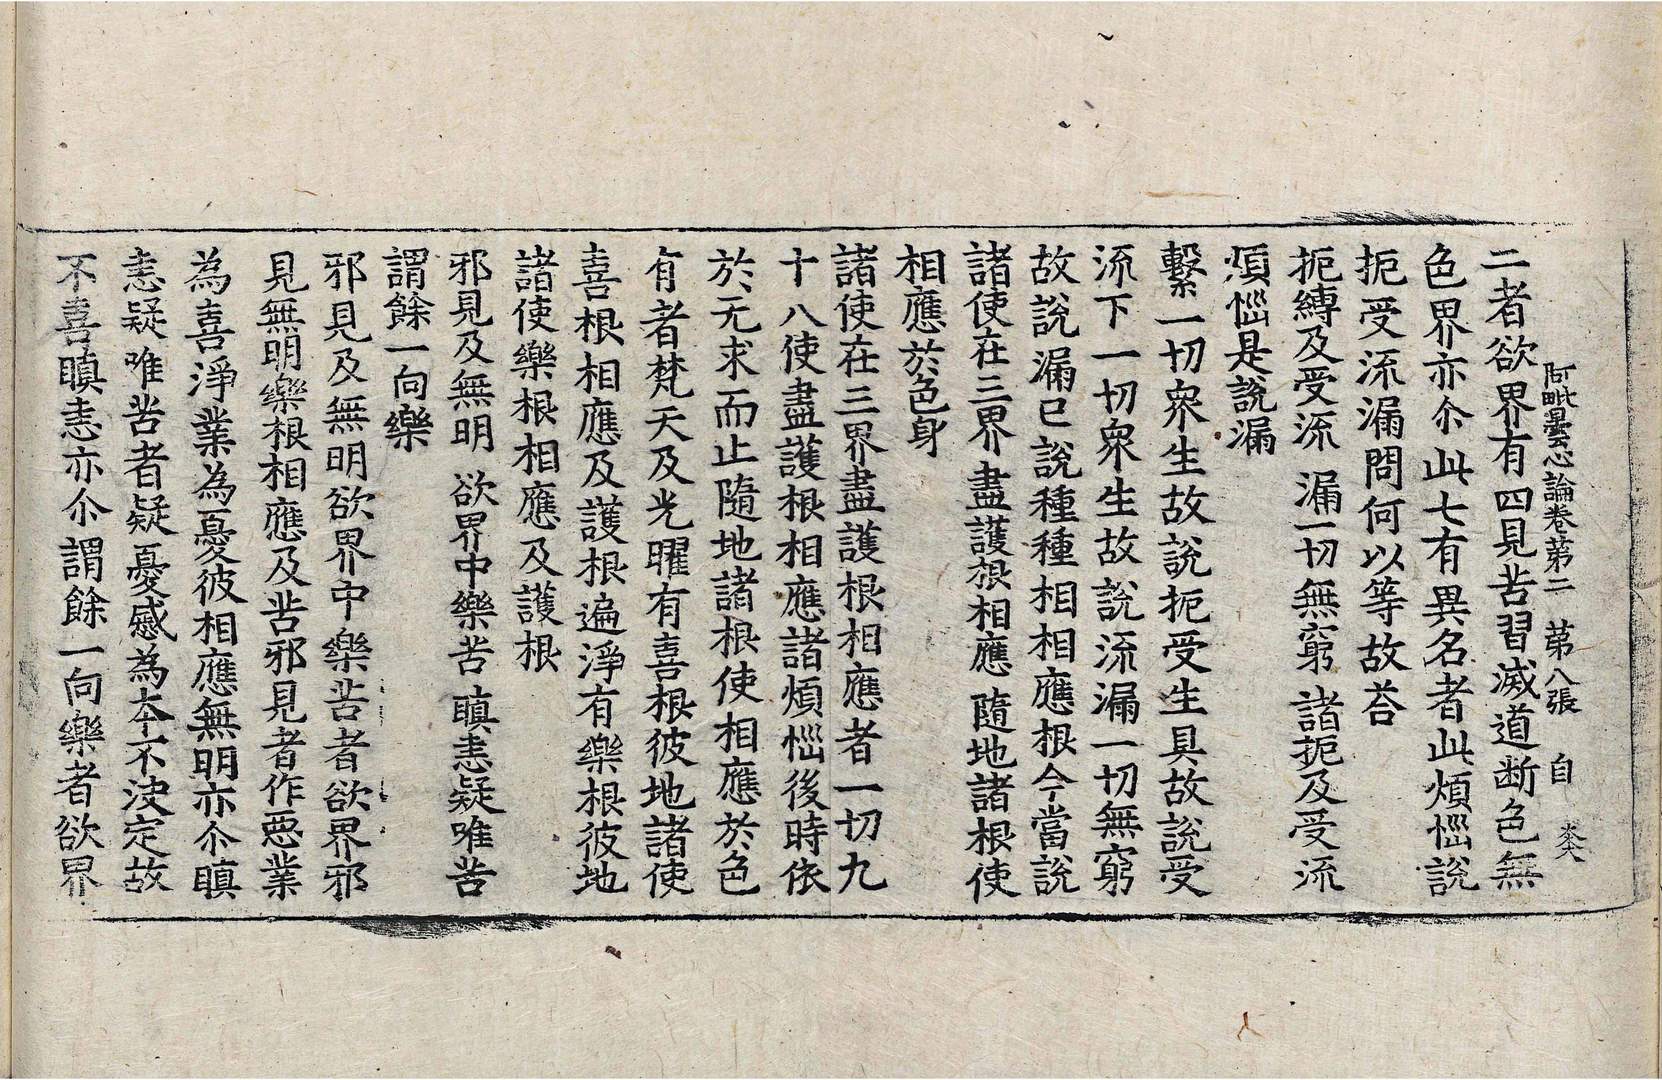 阿毗曇心論卷第二 第八張 自
二者欲界有四見苦習滅道断色無
色界亦尒此七有異名者此煩惱說
扼受流漏問何以等故荅
扼縛及受流 漏一切無窮 諸扼及受流
煩惱是說漏
繫一切衆生故說扼受生具故說受
流下一切衆生故說流漏一切無窮
故說漏已說種種相相應根今當說
諸使在三界 盡護根相應 隨地諸根使
相應於色身
諸使在三界盡護根相應者一切九
十八使盡護根相應諸煩惱後時依
於无求而止隨地諸根使相應於色
有者梵天及光曜有喜根彼地諸使
喜根相應及護根遍淨有樂根彼地
諸使樂根相應及護根
邪見及無明 欲界中樂苦 瞋恚疑唯苦
謂餘一向樂
邪見及無明欲界中樂苦者欲界邪
見無明樂根相應及苦邪見者作惡業
為喜淨業為憂彼相應無明亦尒瞋
恚疑唯苦者疑憂慼為本不決定故
不喜瞋恚亦尒謂餘一向樂者欲界